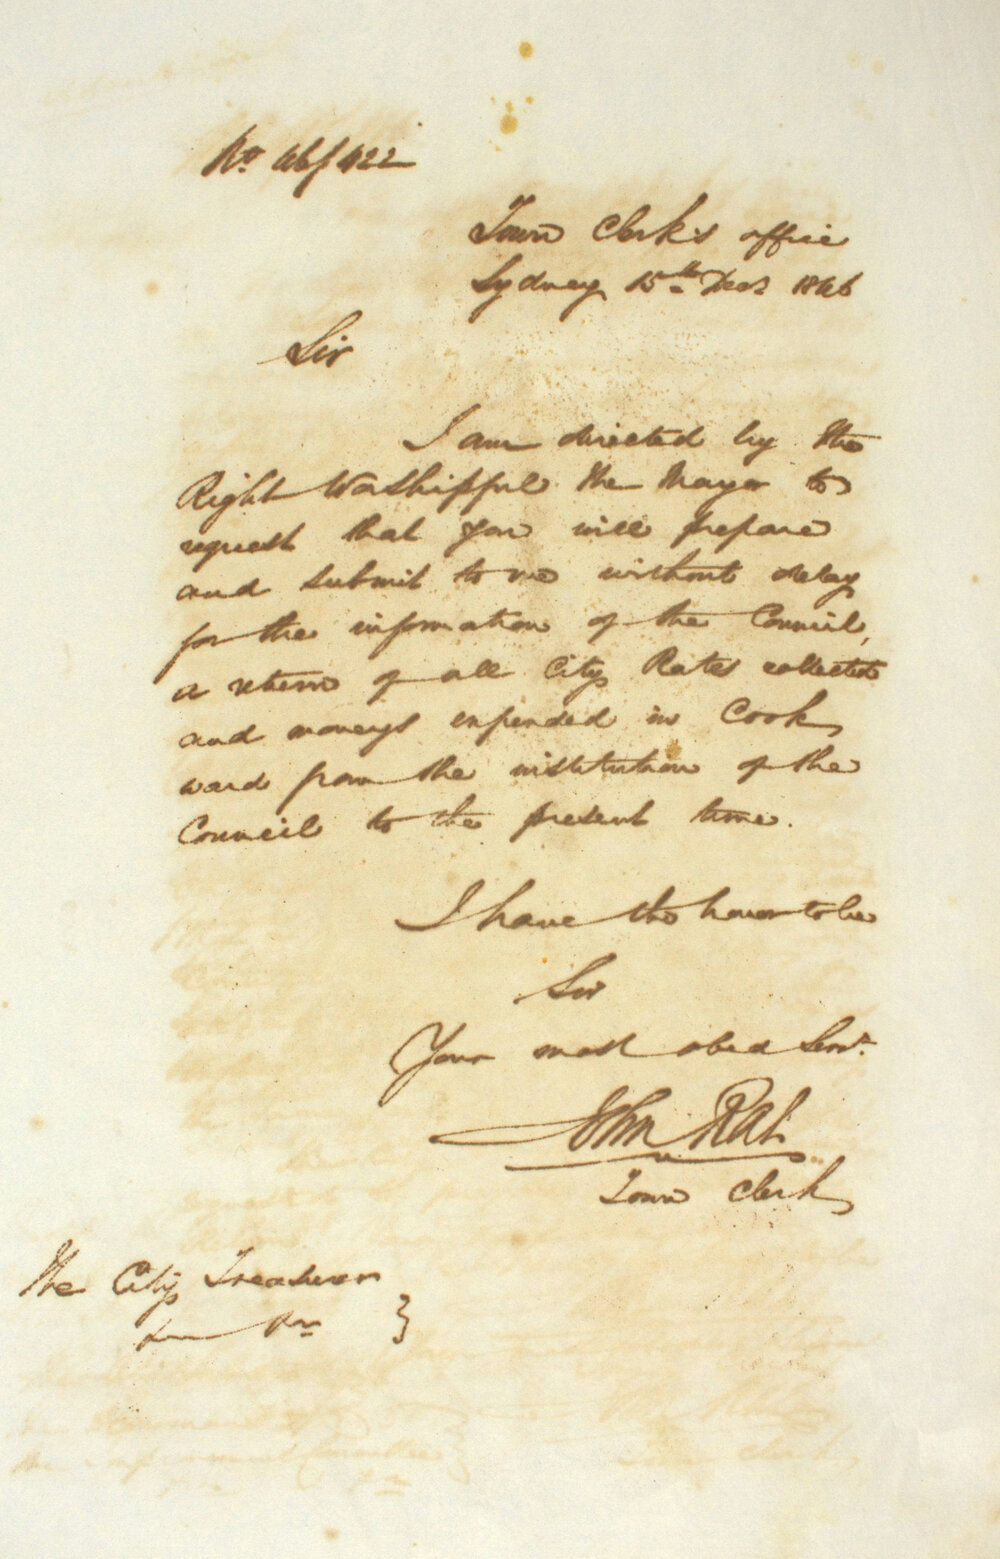 No. 46/422
Town Clerk's office
Sydney 15th Decr 1846
Sir
I am directed by the
Right Worshipful the Mayor to
request that you will prepare
and submit to me without delay
for the information of the Council,
a return of all City Rates collected
and moneys expended in Cook
ward from the institution of the
Council to the present time.
I have the honor to be
Sir
Your most obed Servt.
John Rae
Town Clerk
The City Treasurer